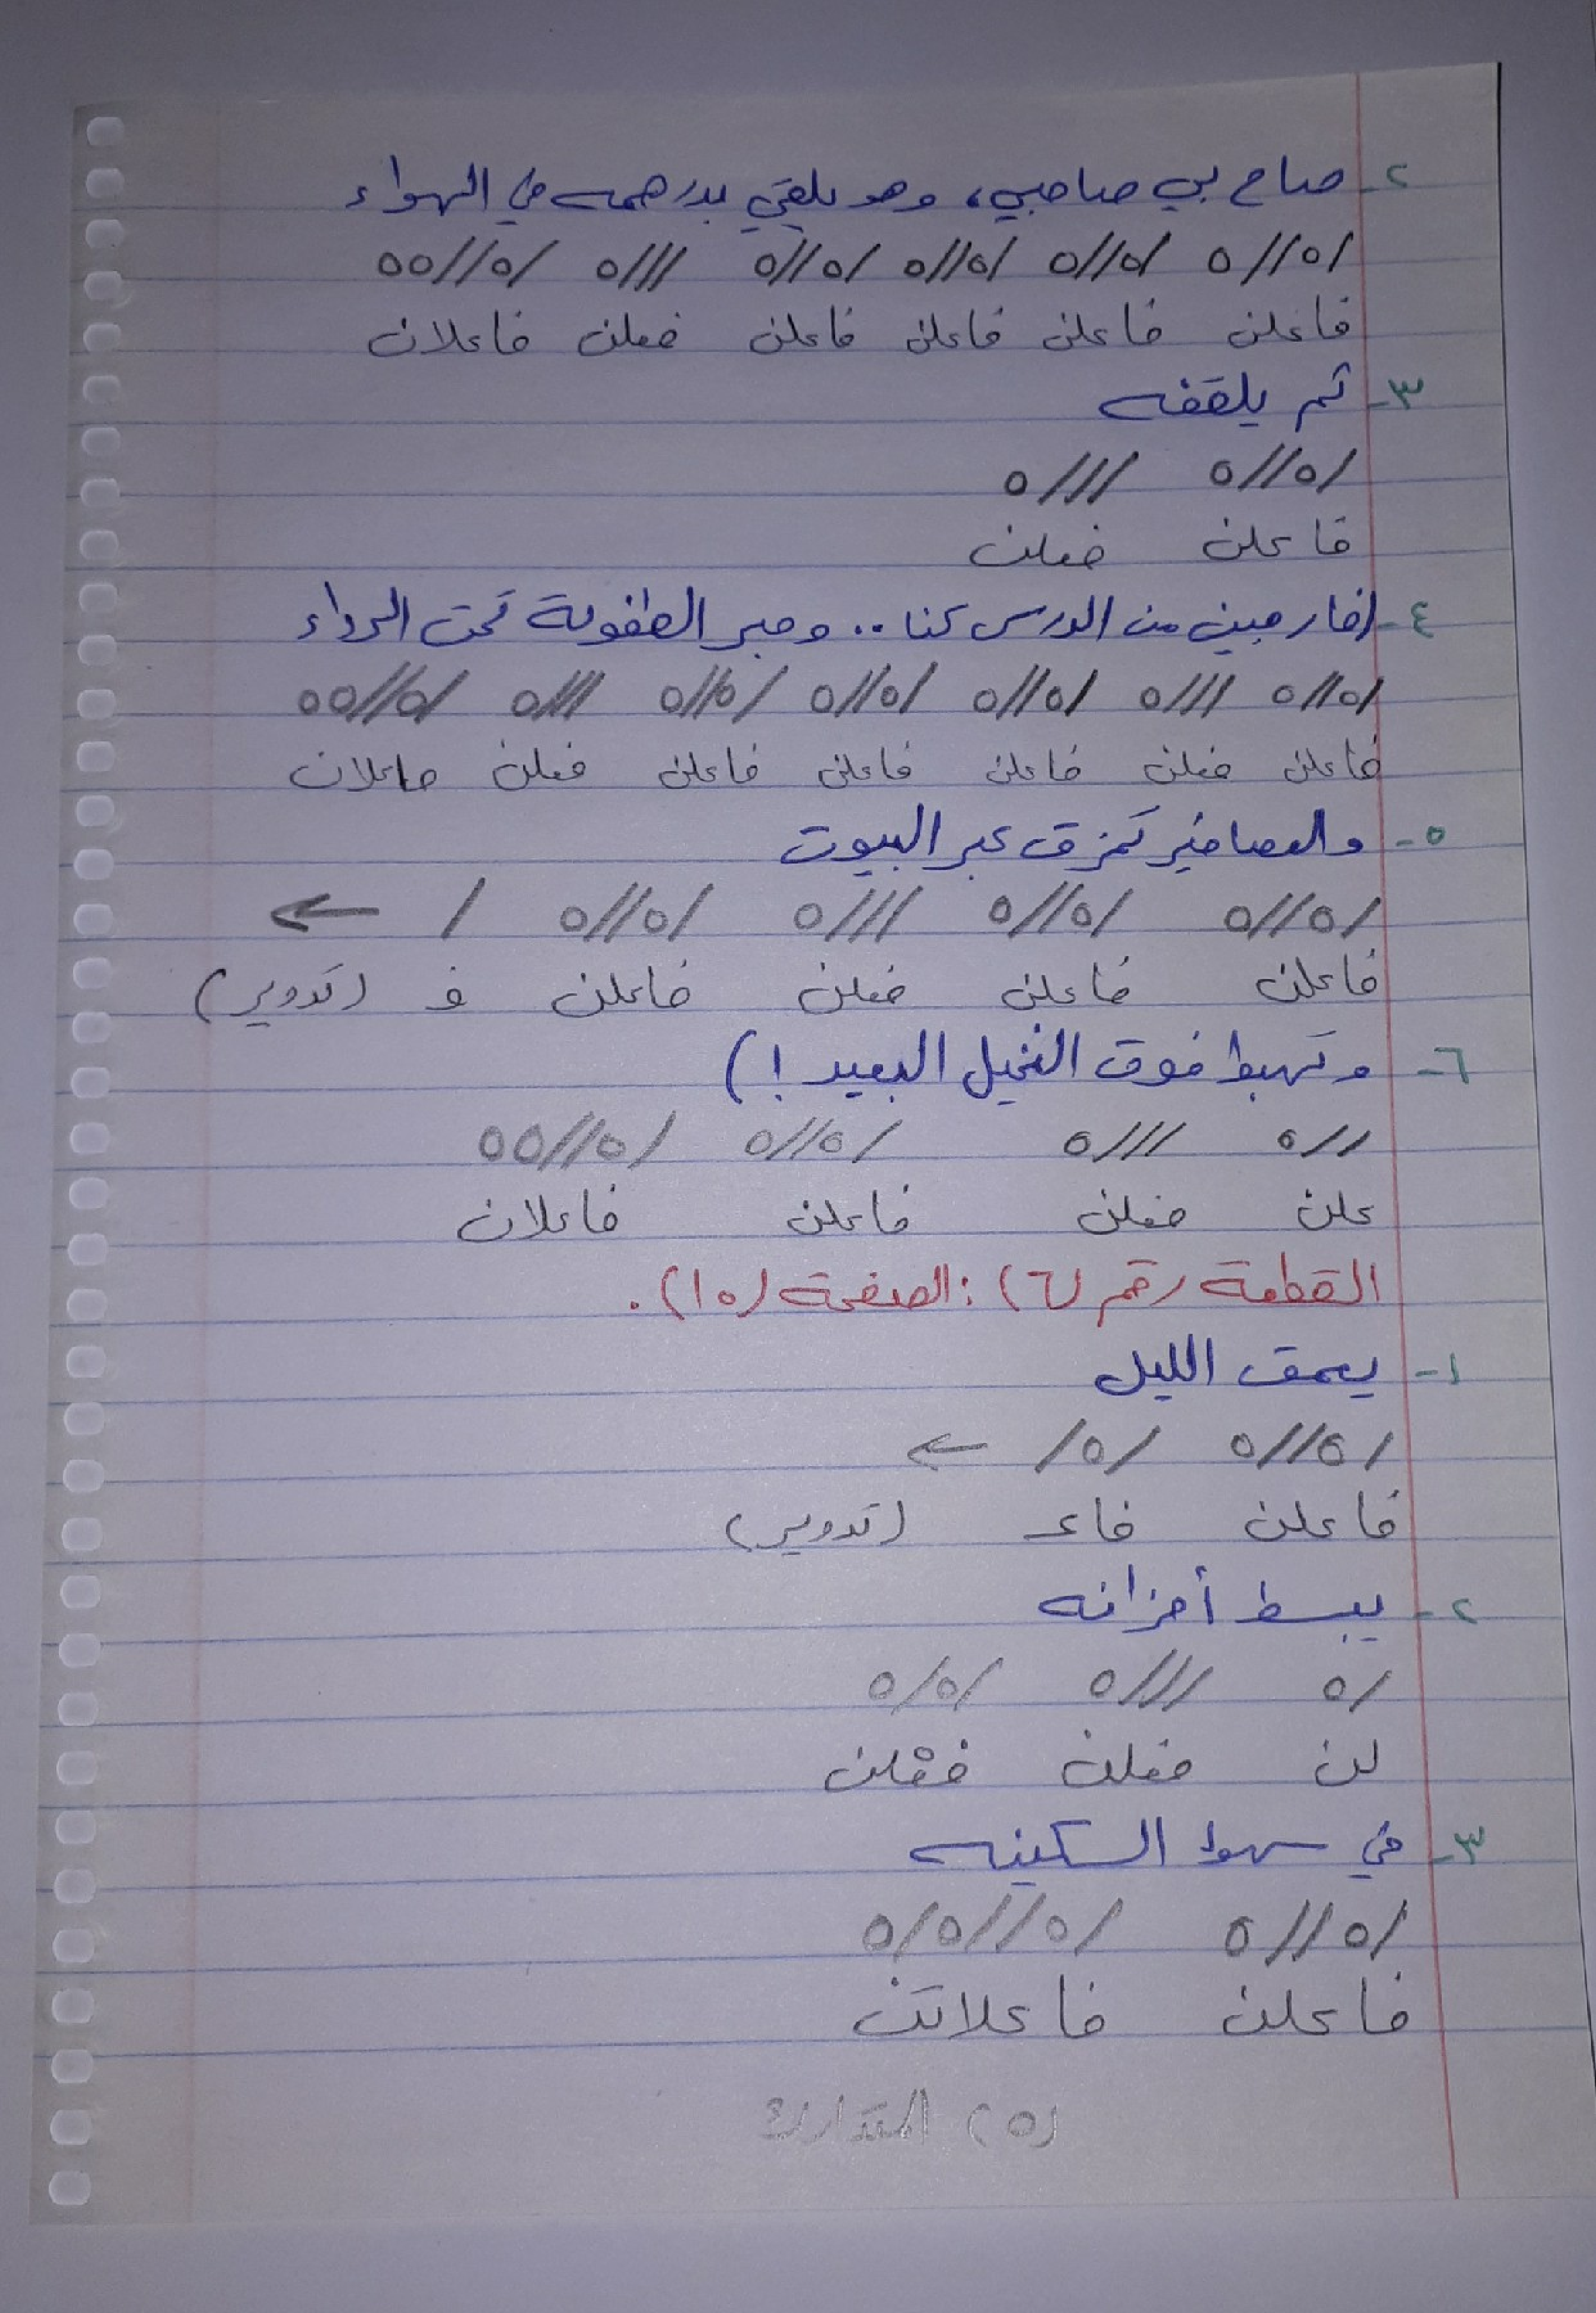 ٢- صاح بي صاحبي، وهو يلقي بدرهمه في الهواء
/ه//ه /ه//ه /ه//ه /ه//ه ///ه /ه//هه
فاعلن فاعلن فاعلن فاعلن فعلن فاعلان
٣- ثم يلقفه
/ه//ه ///ه
فاعلن فعلن
٤- (خارجين من الدرس كنا .. وحبر الطفولة تحت الرداء
/ه//ه ///ه /ه//ه /ه//ه /ه//ه ///ه /ه//هه
فاعلن فعلن فاعلن فاعلن فاعلن فعلن فاعلان
٥- والعصافير تمزق عبر البيوت
/ه//ه /ه//ه ///ه /ه//ه / ←
فاعلن فاعلن فعلن فاعلن ف (تدوير)
٦- وتهبط فوق النخيل البعيد !)
//ه ///ه /ه//ه /ه//هه
علن فعلن فاعلن فاعلان
القطعة رقم (٦) : الصفحة (١٥) .
١- يعمق الليل
/ه//ه /ه/ ←
فاعلن فاعـ (تدوير)
٢- يبسط أحزانه
/ه ///ه /ه/ه
لن فعلن فعْلن
٣- في سهوا السكينه
/ه//ه /ه//ه/ه
فاعلن فاعلاتن
(٥) المتدارك